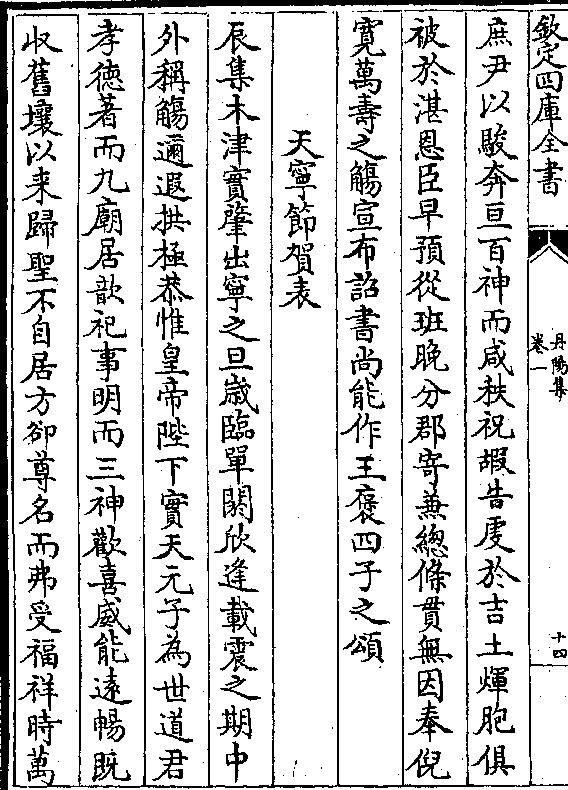 欽定四庫全書
丹陽集
卷一
十四
庶尹以駿奔亘百神而咸秩祝嘏告虔於吉土煇胞俱
被於湛恩臣早預從班晚分郡寄兼總條貫無因奉倪
寛萬壽之觴宣布詔書尚能作王褒四子之頌
天寧節賀表
辰集木津實肇出寧之旦嵗臨單閼欣逢載震之期中
外稱觴邇遐拱極恭惟皇帝陛下實天元子為世道君
孝徳著而九廟居歆祀事明而三神歡喜威能逺暢既
收舊壤以来歸聖不自居方卻尊名而弗受福祥時萬